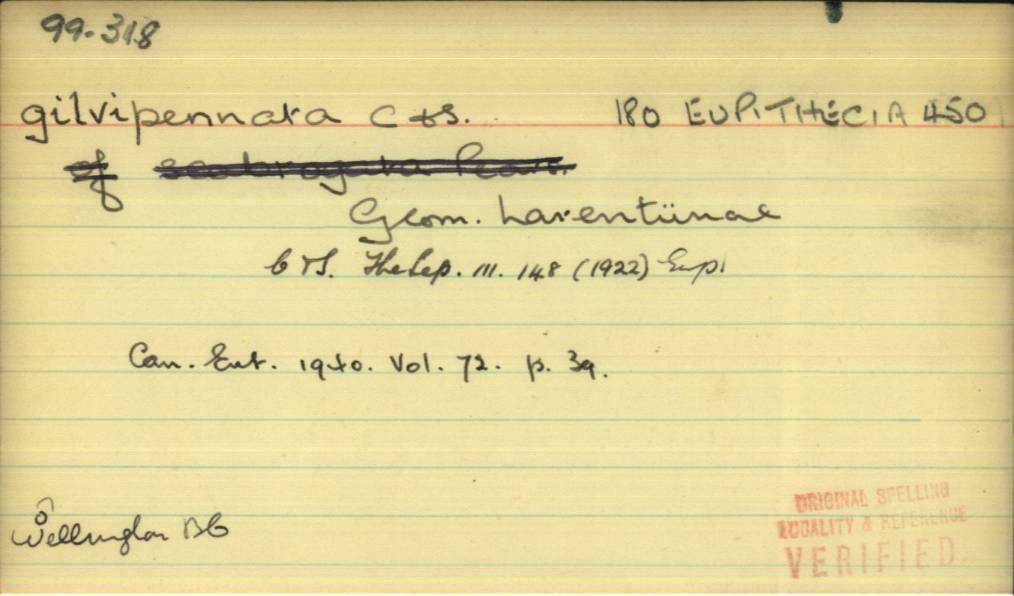 99.318
gilvipennata C & S. 180 EUPITHECIA 450
of scabrogata Pears.
Geom. Larentiinae
C & S. The Lep. III. 148 (1922) Eup.
Can. Ent. 1940. Vol. 72. p. 39.
Wellington BC
ORIGINAL SPELLING
LOCALITY & REFERENCE
VERIFIED